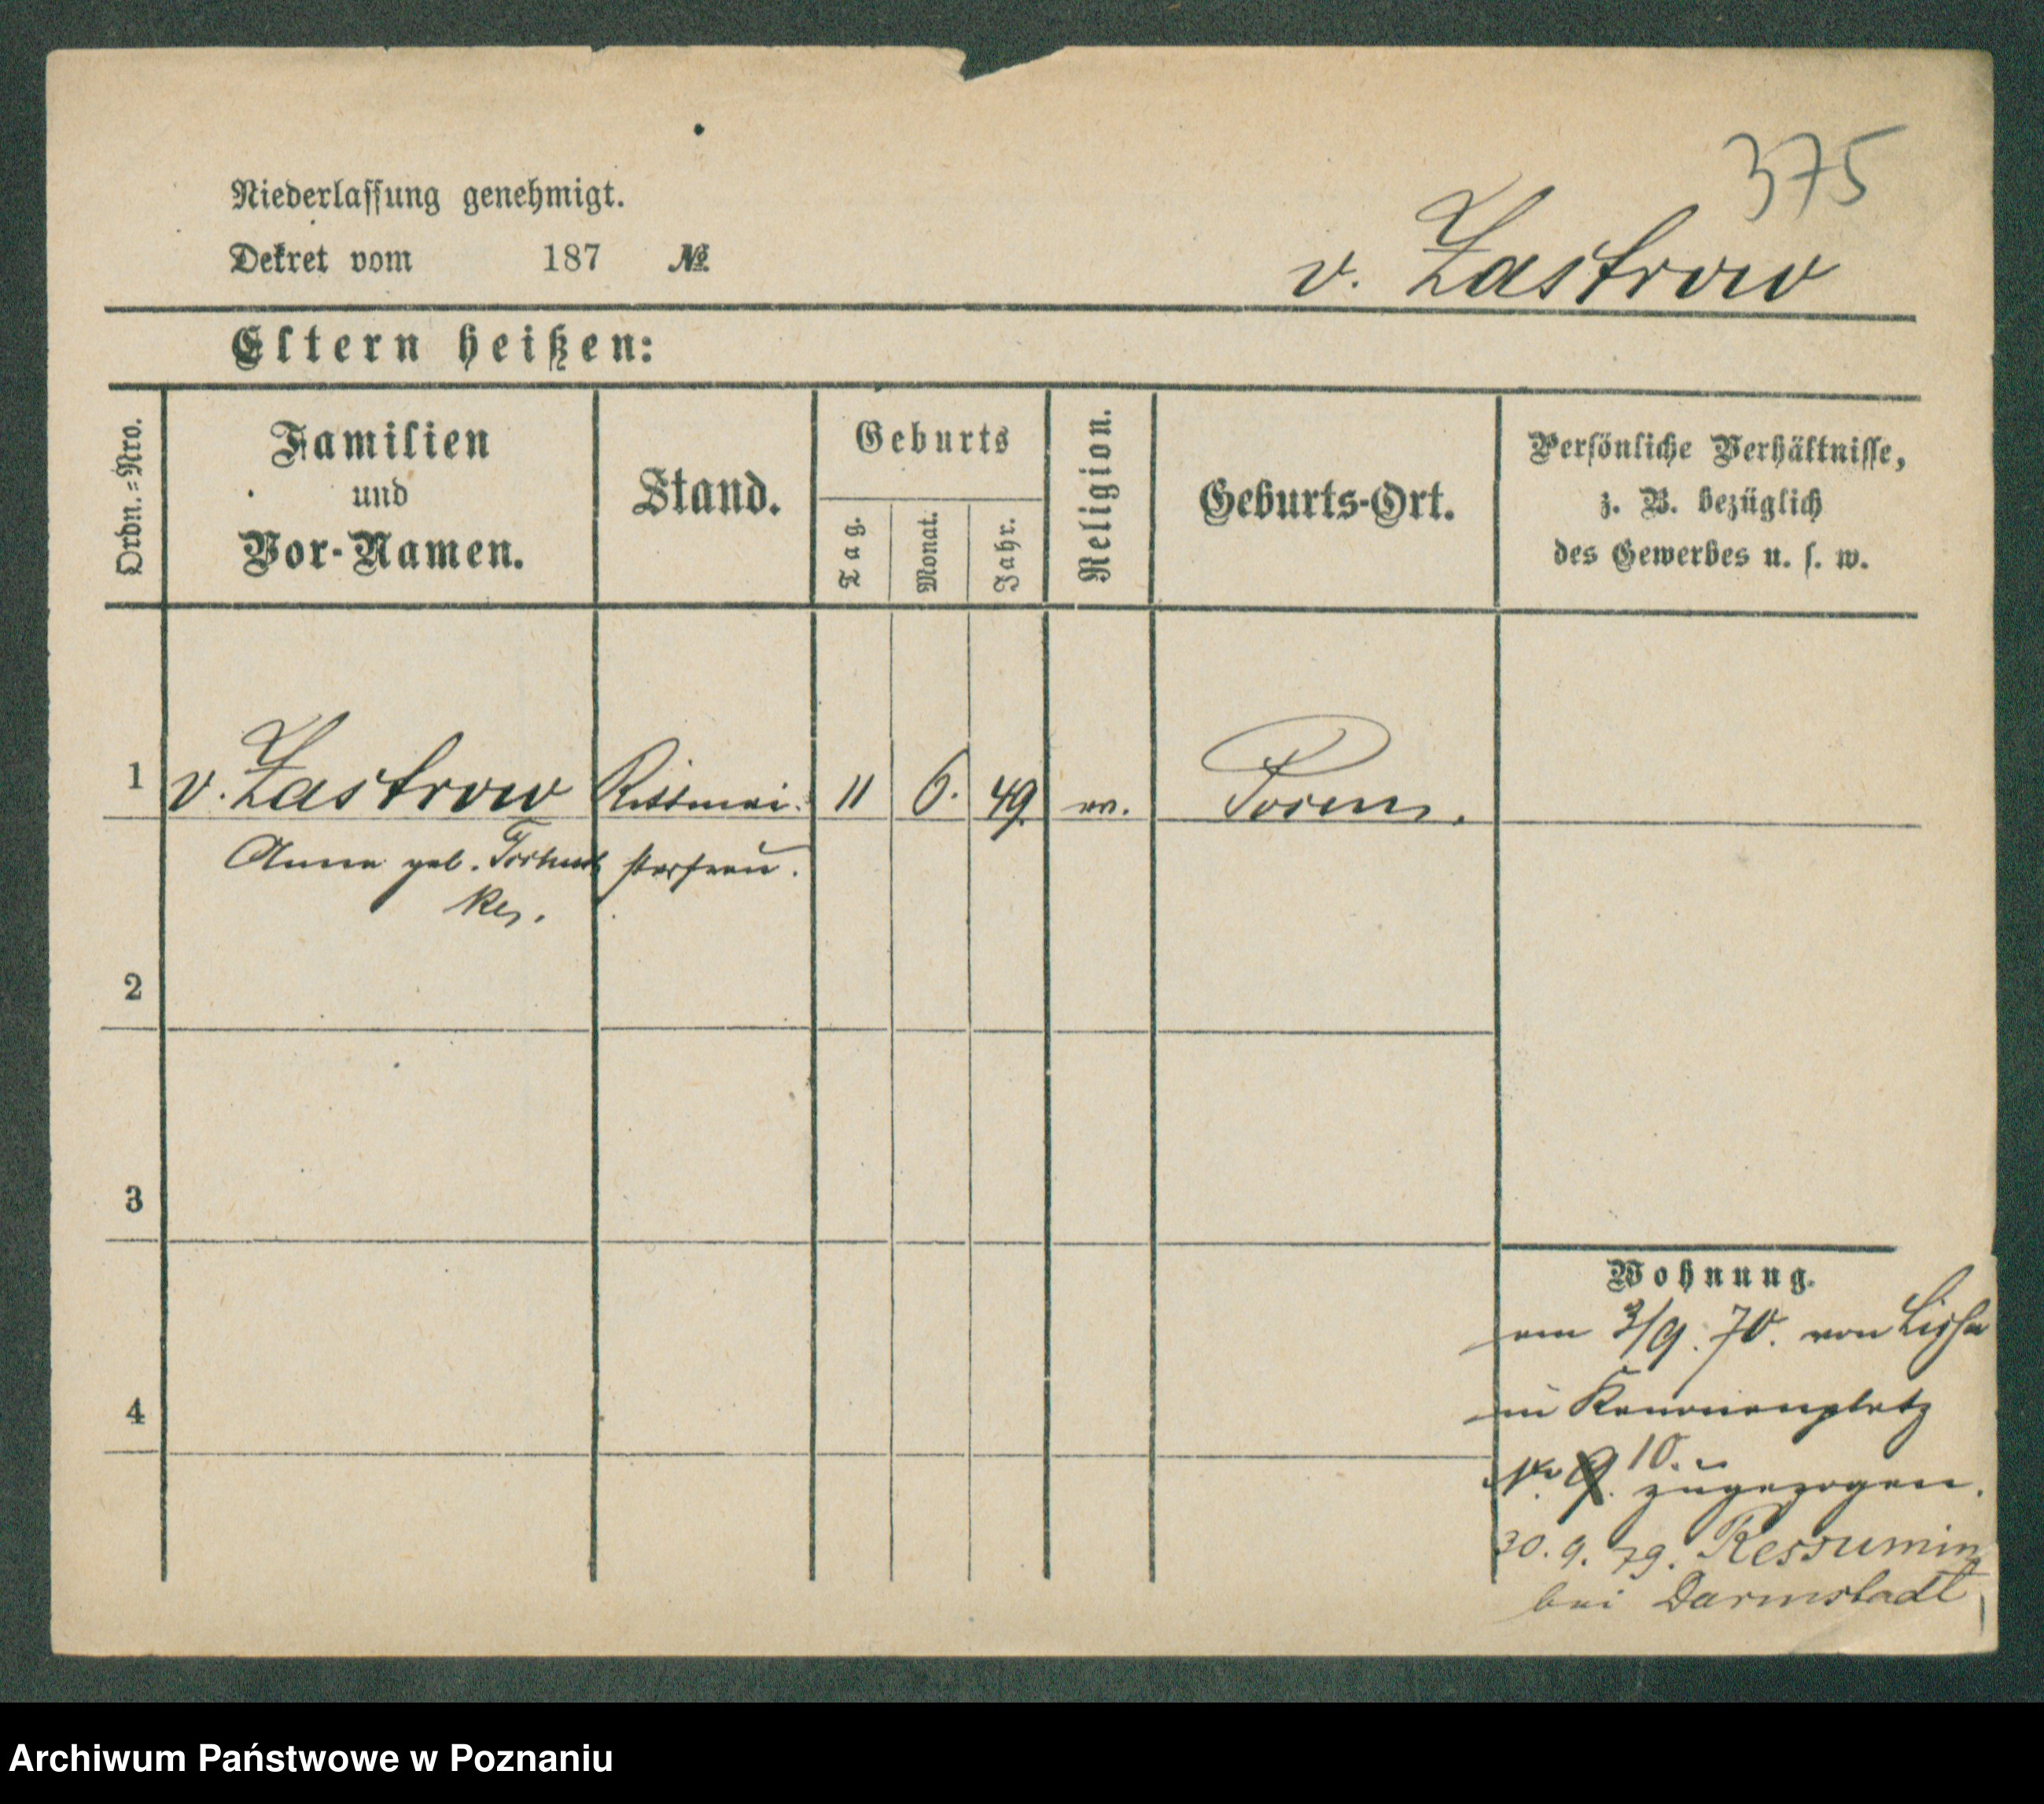 375
Niederlassung genehmigt.
Dekret vom 187 №
v. Zastrow
Eltern heißen:
Ordn.=Nro.
Familien
und
Vor-Namen.
Stand.
Geburts
Tag.
Monat.
Jahr.
Religion.
Geburts-Ort.
Persönliche Verhältnisse,
z. B. bezüglich
des Gewerbes u. s. w.
1 v. Zastrow Rittmei- 11 6. 49. Posen.
Anna geb. sterfrau.
2
3
4
Wohnung.
am 3/9. 70. von Lissa
in Kanonenplatz
No 10. zugezogen.
30. 9. 79.
bei Darmstadt
Archiwum Państwowe w Poznaniu